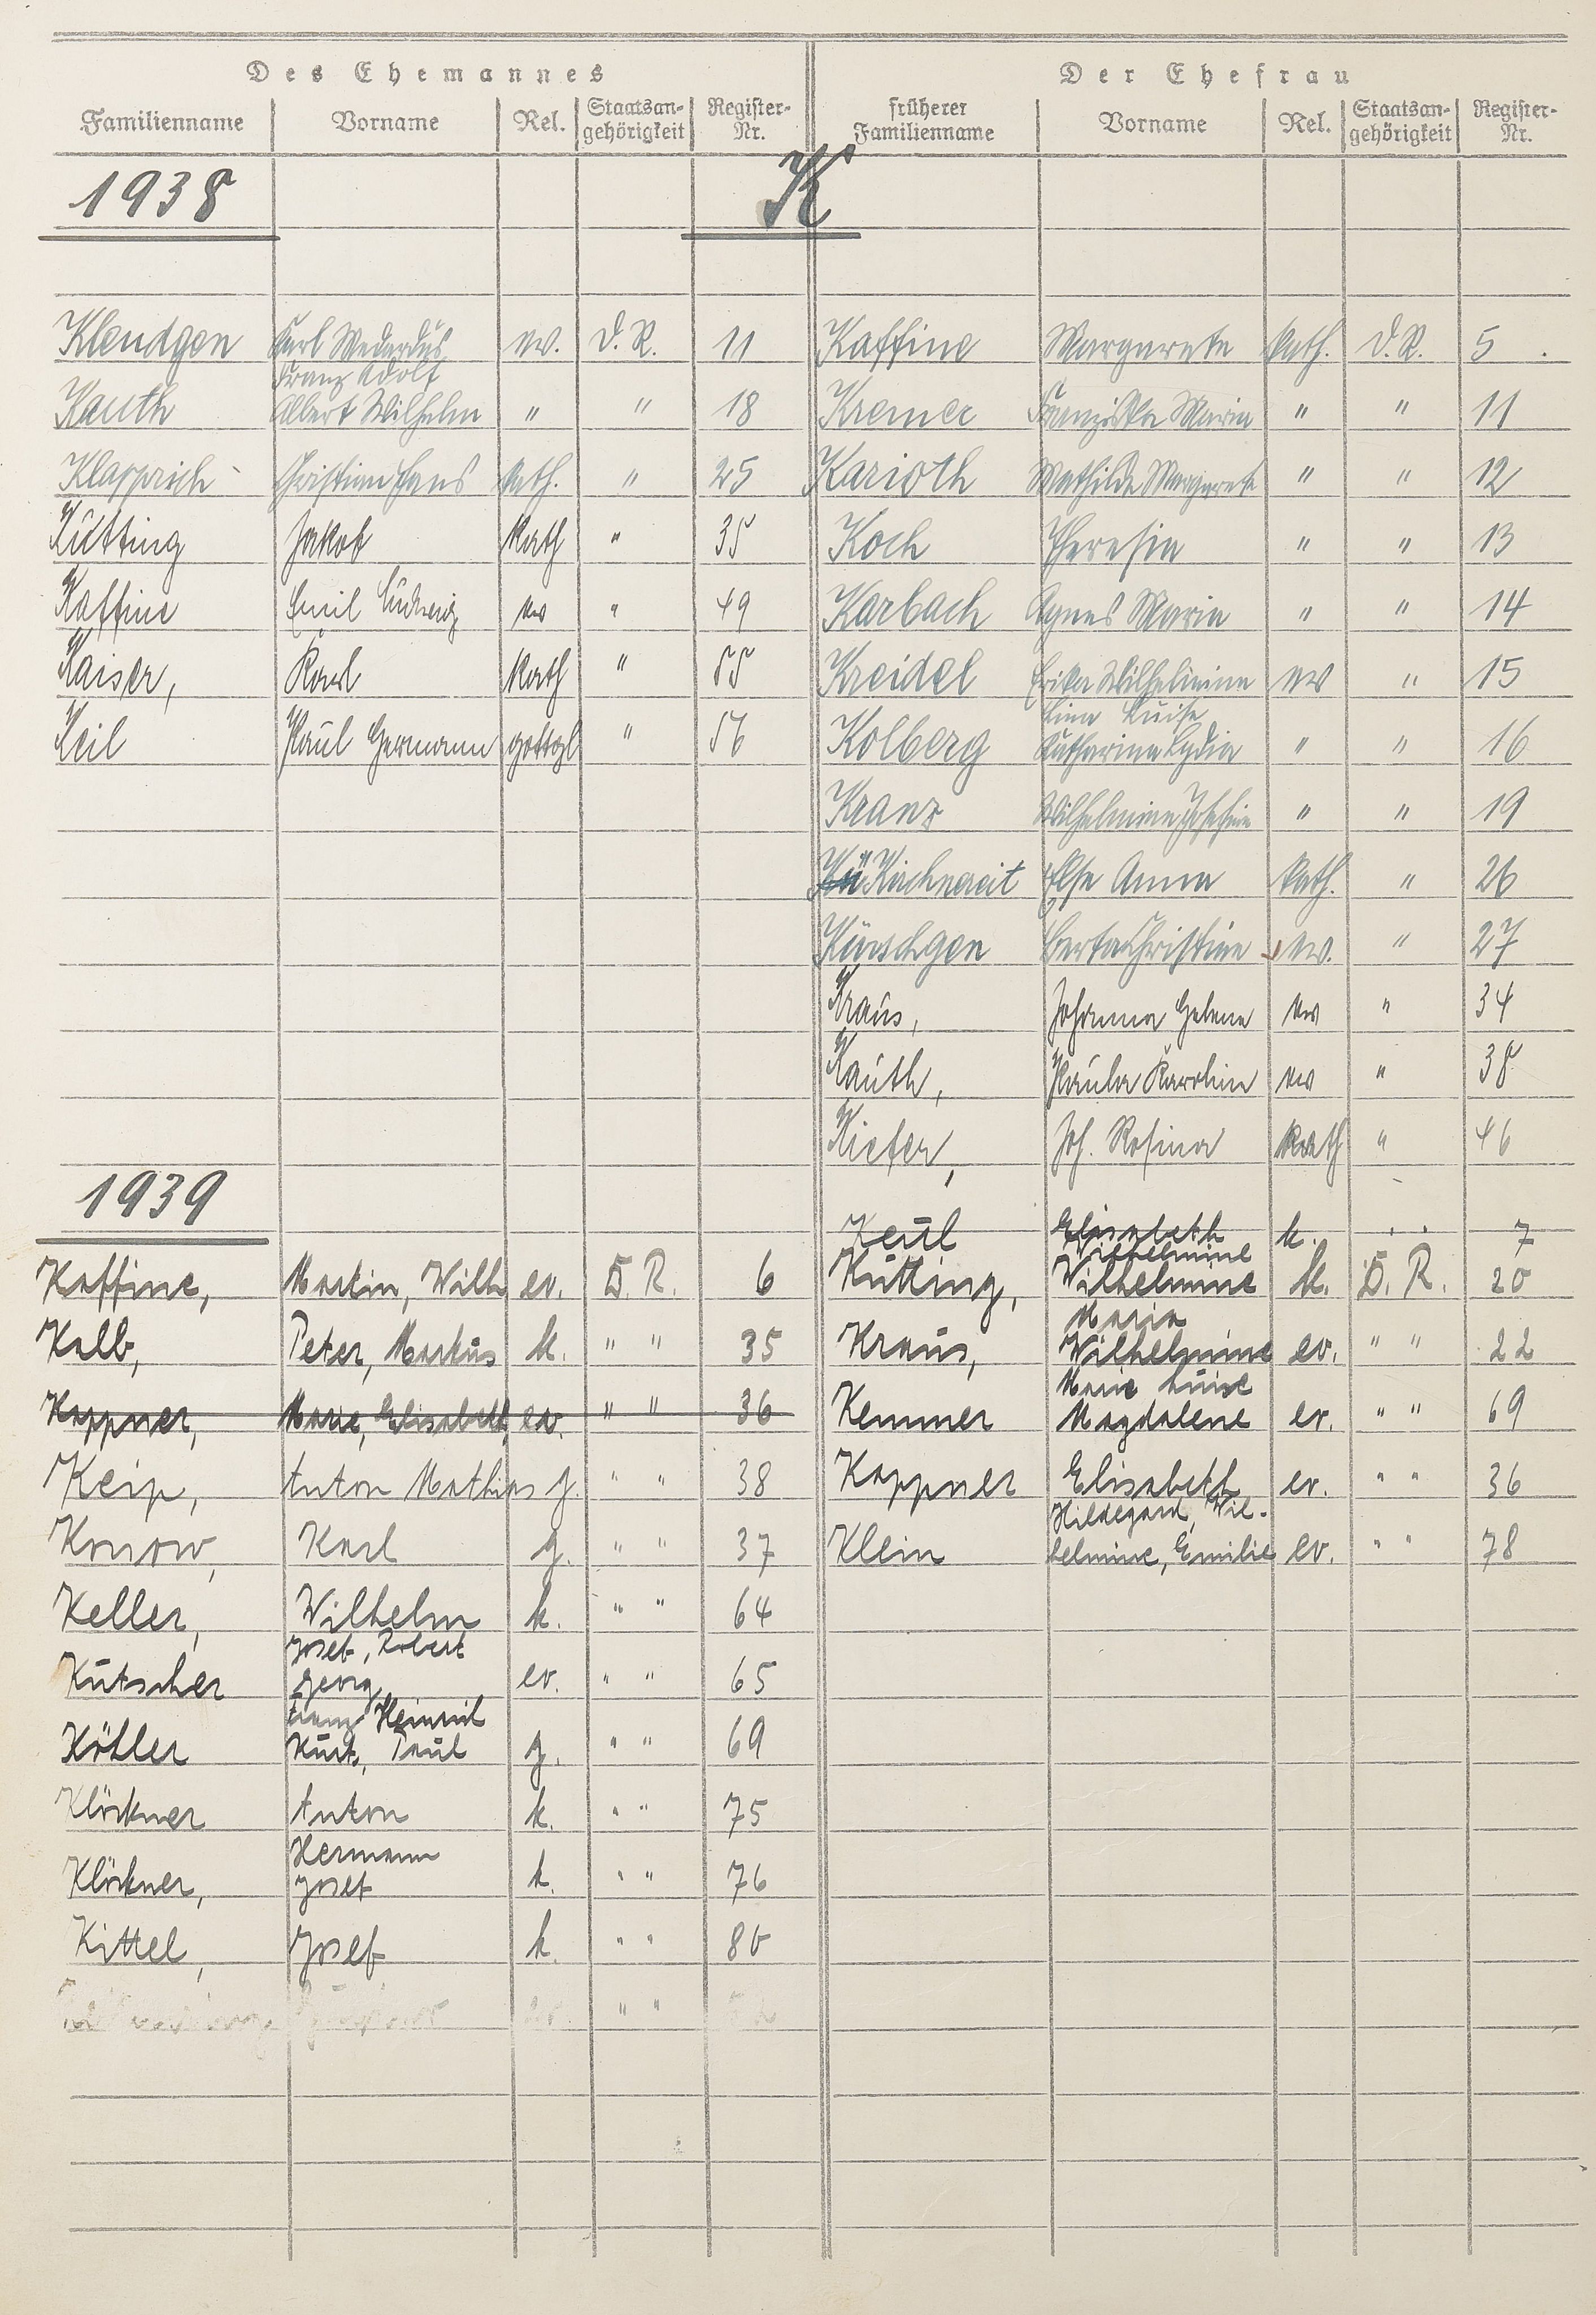 Des Ehemannes Der Ehefrau
Familienname Vorname Rel. Staatsan-gehörigkeit Register-Nr. früherer Familienname Vorname Rel. Staatsan-gehörigkeit Register-Nr.
1938 K
Klendgen Karl Medardus ev. D.R. 11 Kaffine Margarete kath. D.R. 5
Franz Adolf
Kauth Albert Wilhelm " " 18 Kremer Franziska Maria " " 11
Klapprich Christian Hans kath. " 25 Karioth Mathilde Margarete " " 12
Kütting Jakob kath " 35 Koch Theresia " " 13
Kaffine Emil Ludwig ev " 49 Karbach Agnes Maria " " 14
Kaiser, Karl kath " 55 Kreidel Erika Wilhelmine ev " 15
Lina Luise
Keil Paul Hermann gottgl " 56 Kolberg Katharina Lydia " " 16
Kranz Wilhelmine Josefine " " 19
Kü Kirchnereit Else Anna kath. " 26
Kürschgen Berta Christine ev. " 27
Kraus, Johanna Helene ev " 34
Kauth, Paula Karoline ev " 38
Kiefer, Joh. Rosina kath " 46
1939 Keul Elisabeth k. " " 7
Wilhelmine
Kaffine, Martin, Wilh ev. D.R. 6 Kütting, Wilhelmine k. D.R. 20
Maria
Kalb, Peter, Markus k. " " 35 Kraus, Wilhelmine ev. " " 22
Marie Luise
Kappner, Marie, Elisabeth, ev. " " 36 Kemmer Magdalene ev. " " 69
Keip, Anton Mathias g. " " 38 Kappner Elisabeth ev. " " 36
Hildegard, Wil-
Konow, Karl g. " " 37 Klein helmine, Emilie ev. " " 78
Keller, Wilhelm k. " " 64
Josef, Robert
Kutscher Georg ev. " " 65
Franz Heinrich
Köhler Kurt, Paul g. " " 69
Klöckner Anton k. " " 75
Hermann
Klöckner, Josef k. " " 76
Kittel, Josef k. " " 80
" "